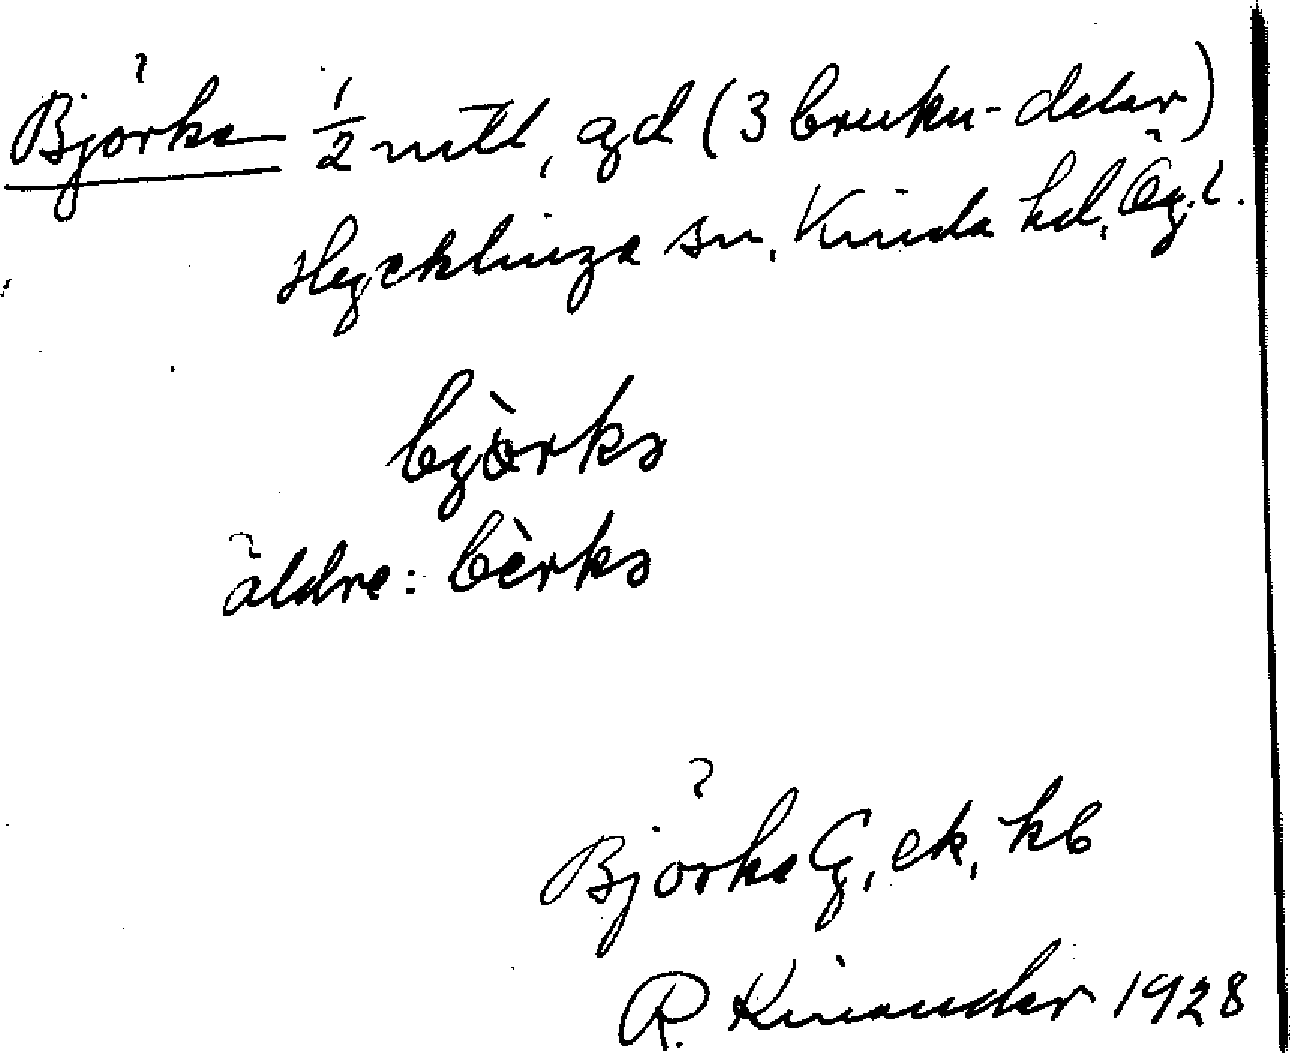 Björke 1/2 mtl, gd (3 brukn-delar)
Hycklinge sn, Kinda hd, Ög.l.
bjòrkə
äldre: bèrkə
Björke G, ek, kb
R. Kinander 1928